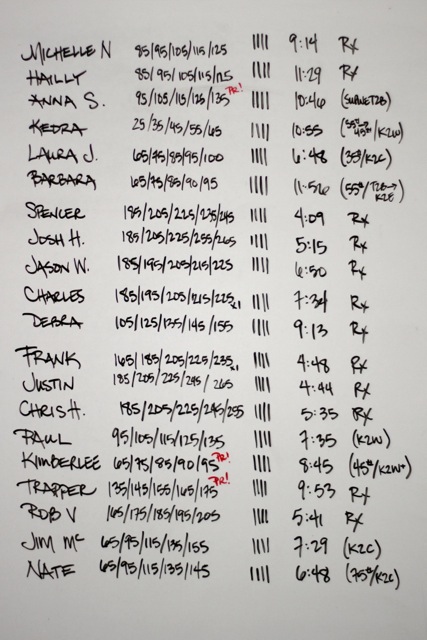 MICHELLE N 85/95/105/115/125 |||| 9:14 Rx
HAILLY 85/95/105/115/125 |||| 11:29 Rx
ANNA S. 95/105/115/125/135 PR! |||| 10:46
KEDRA 25/35/45/55/65 |||| 10:55
LAURA J. 65/75/85/95/100 |||| 6:48 (35#/K2C)
BARBARA 65/75/85/90/95 |||| 11:56 (55#/T2B→K2E)
SPENCER 185/205/225/235/245 |||| 4:09 Rx
JOSH H. 185/205/225/255/265 |||| 5:15 Rx
JASON W. 185/195/205/215/225 |||| 6:50 Rx
CHARLES 185/195/205/215/225x1 |||| 7:34 Rx
DEBRA 105/125/135/145/155 |||| 9:13 Rx
FRANK 165/185/205/225/235x1 |||| 4:48 Rx
JUSTIN 185/205/225/245/265 |||| 4:44 Rx
CHRIS H. 185/205/225/245/255 |||| 5:35 Rx
PAUL 95/105/115/125/135 |||| 7:35 (K2W)
KIMBERLEE 65/75/85/90/95 PR! |||| 8:45 (45#/K2W+)
TRAPPER 135/145/155/165/175 PR! |||| 9:53 Rx
ROB V 165/175/185/195/205 |||| 5:41 Rx
JIM Mc 65/95/115/135/155 |||| 7:29 (K2C)
NATE 65/95/115/135/145 |||| 6:48 (75#/K2C)